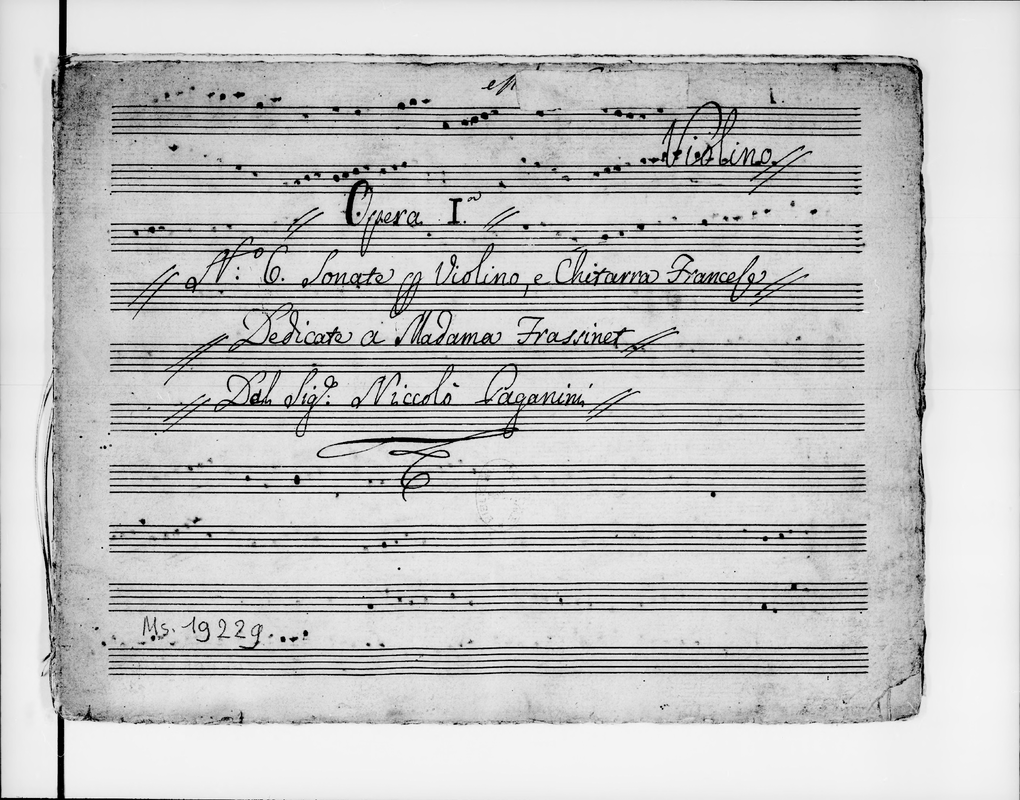 Violino //
// Opera I.ᵃ //
// N.º 6. Sonate p Violino, e Chitarra Francese //
// Dedicate a Madama Frassinet //
// Dal Sigʳ: Niccolò Paganini //
Ms. 19229.